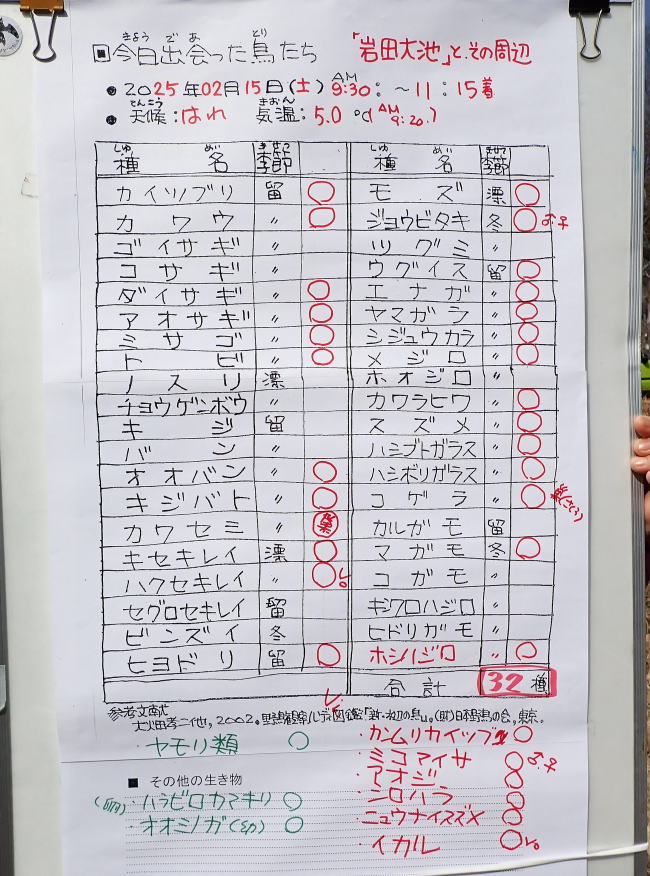 ■今日出会った鳥たち 「岩田大池」と、その周辺
きょう であ とり
● 2025年02月15日(土) AM 9:30: ～11:15着
てんこう きおん
● 天候:はれ 気温:5.0℃(AM 9:20.)
しゅ めい きせつ しゅ めい きせつ
種名 季節 種名 季節
カイツブリ 留 ○ モズ 漂 ○
カワウ 〃 ○ ジョウビタキ 冬 ○ ♂・♀
ゴイサギ 〃 ツグミ 〃
コサギ 〃 ウグイス 留 ○
ダイサギ 〃 ○ エナガ 〃 ○
アオサギ 〃 ○ ヤマガラ 〃 ○
ミサゴ 〃 ○ シジュウカラ 〃 ○
トビ 〃 ○ メジロ 〃 ○
ノスリ 漂 ホオジロ 〃
チョウゲンボウ 〃 カワラヒワ 〃 ○
キジ 留 スズメ 〃 ○
バン 〃 ハシブトガラス 〃 ○
オオバン 〃 ○ ハシボリガラス 〃 ○
キジバト 〃 ○ コゲラ 〃 ○
カワセミ 〃 カルガモ 留
キセキレイ 漂 ○ マガモ 冬 ○
ハクセキレイ 〃 ○ コガモ 〃
セグロセキレイ 留 キンクロハジロ 〃
ビンズイ 冬 ヒドリガモ 〃
ヒヨドリ 留 ○ ホシハジロ 〃 ○
合計 32種
参考文献
2002. 図鑑「新・水辺の鳥」. (財)日本野鳥の会, 東京.
・ヤモリ類 ○
・カンムリカイツブリ ○
・ミコアイサ ○ ♂・♀
・アオジ ○
・シロハラ ○
・ニュウナイスズメ ○
・イカル ○
■ その他の生き物
(卵)・ハラビロカマキリ ○
・オオミノガ(幼) ○